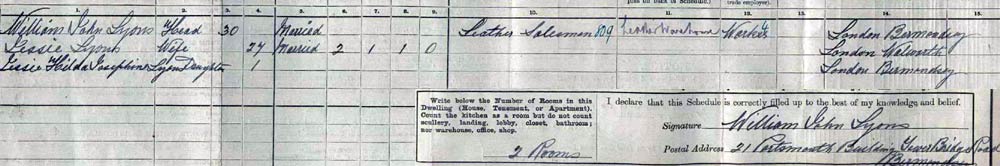 1. 2. 3. 4. 5. 6. 7. 8. 9. 10. 11. 12. 13. 14. 15.
William John Lyons Head 30 Married Leather Salesman 809 Leather Warehouse Worker London Bermondsey
Lessie Lyons Wife 27 Married 2 1 1 0 London Walworth
Lessie Hilda Josephine Lyons Daughter 1 London Bermondsey
Write below the Number of Rooms in this
Dwelling (House, Tenement, or Apartment).
Count the kitchen as a room but do not count
scullery, landing, lobby, closet, bathroom;
nor warehouse, office, shop.
2 Rooms
I declare that this Schedule is correctly filled up to the best of my knowledge and belief.
Signature William John Lyons
Postal Address 21 Portsmouth Building Tower Bridge Road
Bermondsey